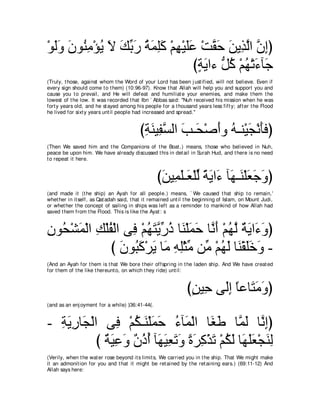 ﴿إِنَّ الَّذِينَ حَقَّتْ عَلَيْهِمْ كَلِمَةُ رَبِّكَ لاَ يُؤْمِنُونَ وَلَوْ
جَآءَتْهُمْ كُلُّ ءايَةٍ﴾
(Truly, those, against whom the Word of your Lord has been justified, will not believe. Even if
every sign should come to them) (10:96-97). Know that Allah will help you and support you and
cause you to prevail, and He will defeat and humiliate your enemies, and make them the
lowest of the low. It was recorded that Ibn `Abbas said: "Nuh received his mission when he was
forty years old, and he stayed among his people for a thousand years less fifty; after the Flood
he lived for sixty years until people had increased and spread."
﴿فأَنْجَيْنـهُ وأَصْحَـبَ السَّفِينَةِ﴾
(Then We saved him and the Companions of the Boat,) means, those who believed in Nuh,
peace be upon him. We have already discussed this in detail in Surah Hud, and there is no need
to repeat it here.
﴿وَجَعَلْنَـهَآ ءَايَةً لِّلْعَـلَمِينَ﴾
(and made it (the ship) an Ayah for all people.) means, `We caused that ship to remain,'
whether in itself, as Qatadah said, that it remained until the beginning of Islam, on Mount Judi,
or whether the concept of sailing in ships was left as a reminder to mankind of how Allah had
saved them from the Flood. This is like the Ayat:s
﴿وَءَايَةٌ لَّهُمْ أَنَّا حَمَلْنَا ذُرِّيَّتَهُمْ فِى الْفُلْكِ الْمَشْحُونِ
- وَخَلَقْنَا لَهُمْ مِّن مِّثْلِهِ مَا يَرْكَبُونَ ﴾
(And an Ayah for them is that We bore their offspring in the laden ship. And We have created
for them of the like thereunto, on which they ride) until:
﴿وَمَتَاعاً إِلَى حِينٍ﴾
(and as an enjoyment for a while) (36:41-44).
﴿إِنَّا لَمَّا طَغَا الْمَآءُ حَمَلْنَـكُمْ فِى الْجَارِيَةِ -
لِنَجْعَلَهَا لَكُمْ تَذْكِرَةً وَتَعِيَهَآ أُذُنٌ وَعِيَةٌ ﴾
(Verily, when the water rose beyond its limits, We carried you in the ship. That We might make
it an admonition for you and that it might be retained by the retaining ears.) (69:11-12) And
Allah says here: